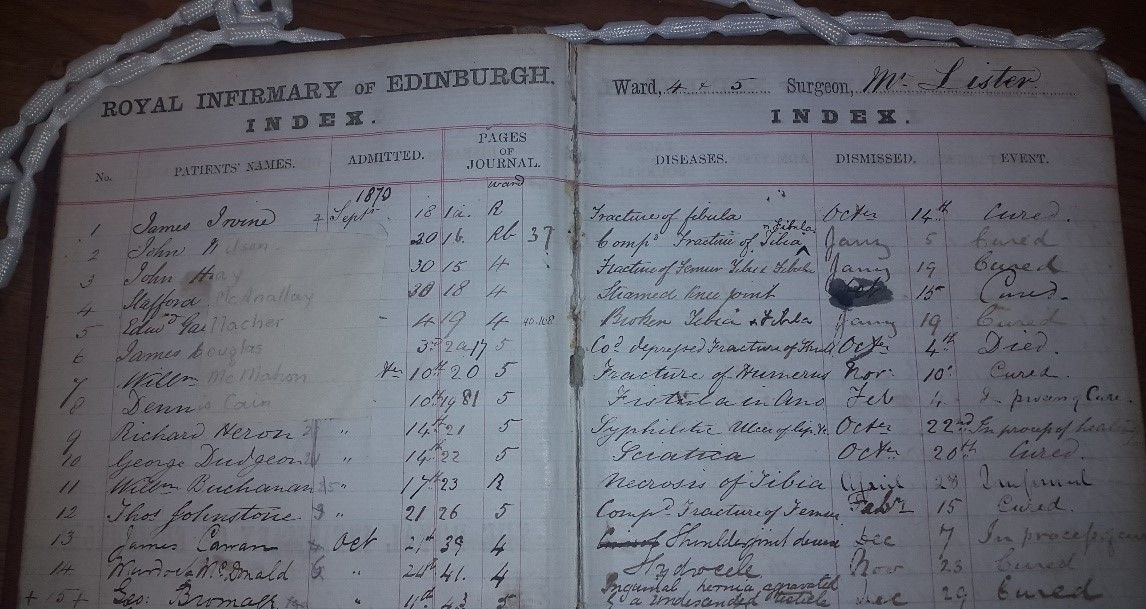 ROYAL INFIRMARY OF EDINBURGH.
INDEX.
Ward, 4 & 5 Surgeon, Mr Lister
INDEX.
No. PATIENTS' NAMES. ADMITTED. PAGES OF JOURNAL. DISEASES. DISMISSED. EVENT.
1870 ward
1 James Irvine Sept 18 1a. R Fracture of fibula Octr 14th Cured.
2 John 20 16. Rb 37 Compd Fracture of Tibia Jany 5 Cured
3 John Hay 30 15 4 Fracture of Femur Tibia Jany 19 Cured
4 Stafford McAnallay 30 18 4 knee joint 15 Cured.
5 Edwd Gallacher 4 19 4 Broken Tibia & Fibula Jany 19 Cured
6 James Douglas 3rd 5 depressed Fracture of Octr 4th Died.
7 Willm McMahon 10th 20 5 Fracture of Humerus Nov. 10 Cured.
8 Dennis Cain 10th 5 Fistula in Ano Feb Cure.
9 Richard Heron " 14th 21 5 Syphilitic Ulcer of Octr 22nd In process of
10 George Dudgeon " 14th 22 5 Sciatica Octr 20th Cured.
11 Willm Buchanan " 17th 23 R Necrosis of Tibia April 28
12 Thos Johnstone " 21 26 5 Compd Fracture of Femur Febr 15 Cured.
13 James Cowan Oct 21st 39 4 Shoulder joint Dec 7 In process
14 Murdock McDonald " 24th 41. 4 Hydrocele Nov 23 Cured
+ 15 + Geo: " 5 Inguinal hernia aggravated Dec 29 Cured